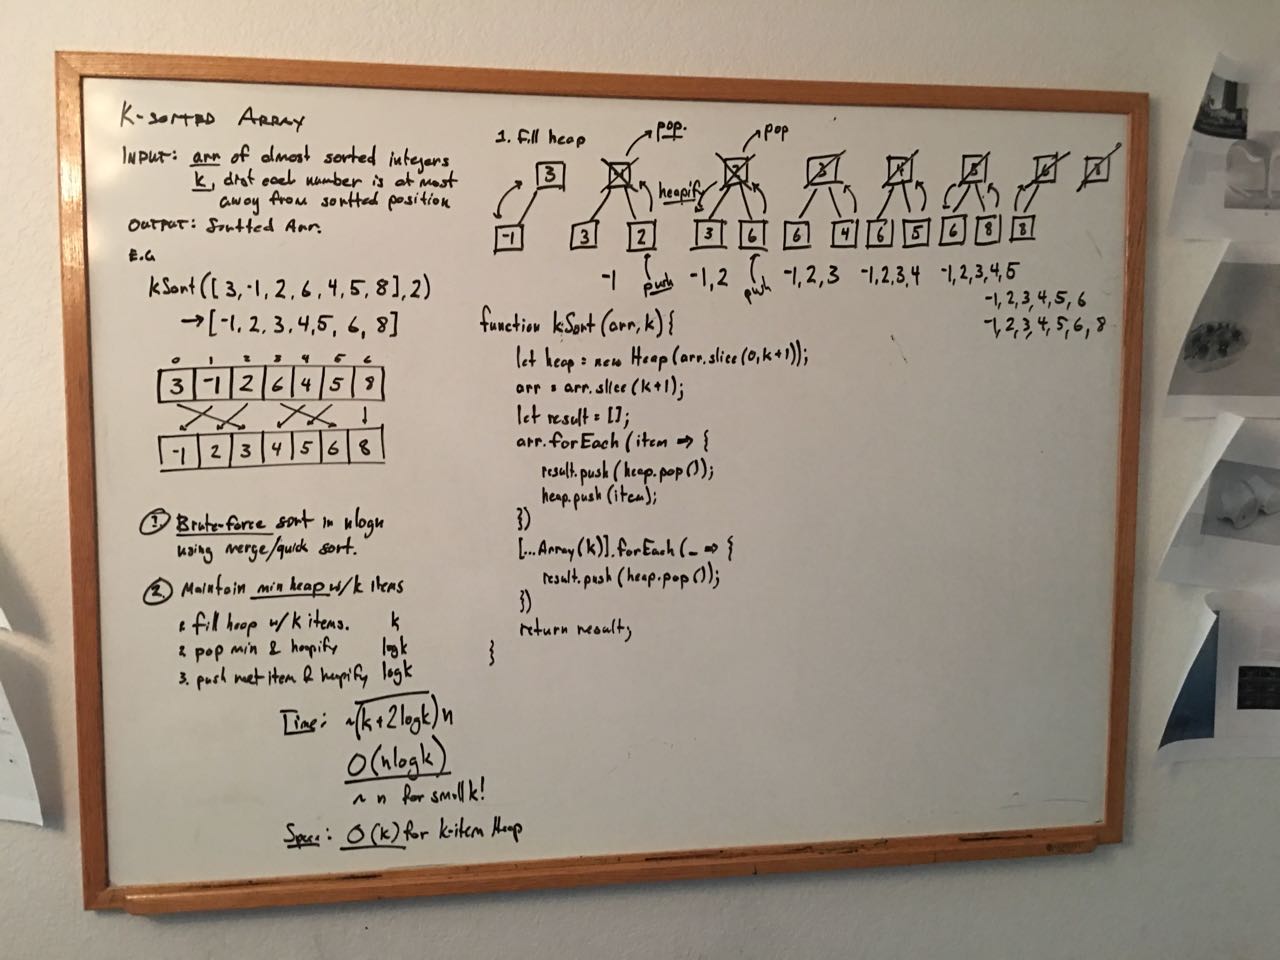 K-SORTED ARRAY
INPUT: arr of almost sorted integers
k, dist each number is at most
away from sortted position
OUTPUT: Sortted Arr.
E.G
kSort([3,-1,2,6,4,5,8],2)
→[-1,2,3,4,5,6,8]
0 1 2 3 4 5 6
3 -1 2 6 4 5 8
-1 2 3 4 5 6 8
① Brute-force sort in nlogn
using merge/quick sort.
② Maintain min heap w/ k items
1. fill heap w/ k items. k
2 pop min & heapify logk
3. push next item & heapify logk
Time: ~(k+2logk)n
O(nlogk)
~ n for small k!
Space: O(k) for k-item Heap
1. Fill heap
pop. pop
3 -1 2 3 4 5 6 8
heapify
-1 3 2 3 6 6 4 6 5 6 8 8
push push
-1 -1,2 -1,2,3 -1,2,3,4 -1,2,3,4,5
-1,2,3,4,5,6
-1,2,3,4,5,6,8
function kSort(arr,k){
let heap = new Heap(arr.slice(0,k+1));
arr = arr.slice(k+1);
let result = [];
arr.forEach(item => {
result.push(heap.pop());
heap.push(item);
})
[...Array(k)].forEach(_ => {
result.push(heap.pop());
})
return result;
}